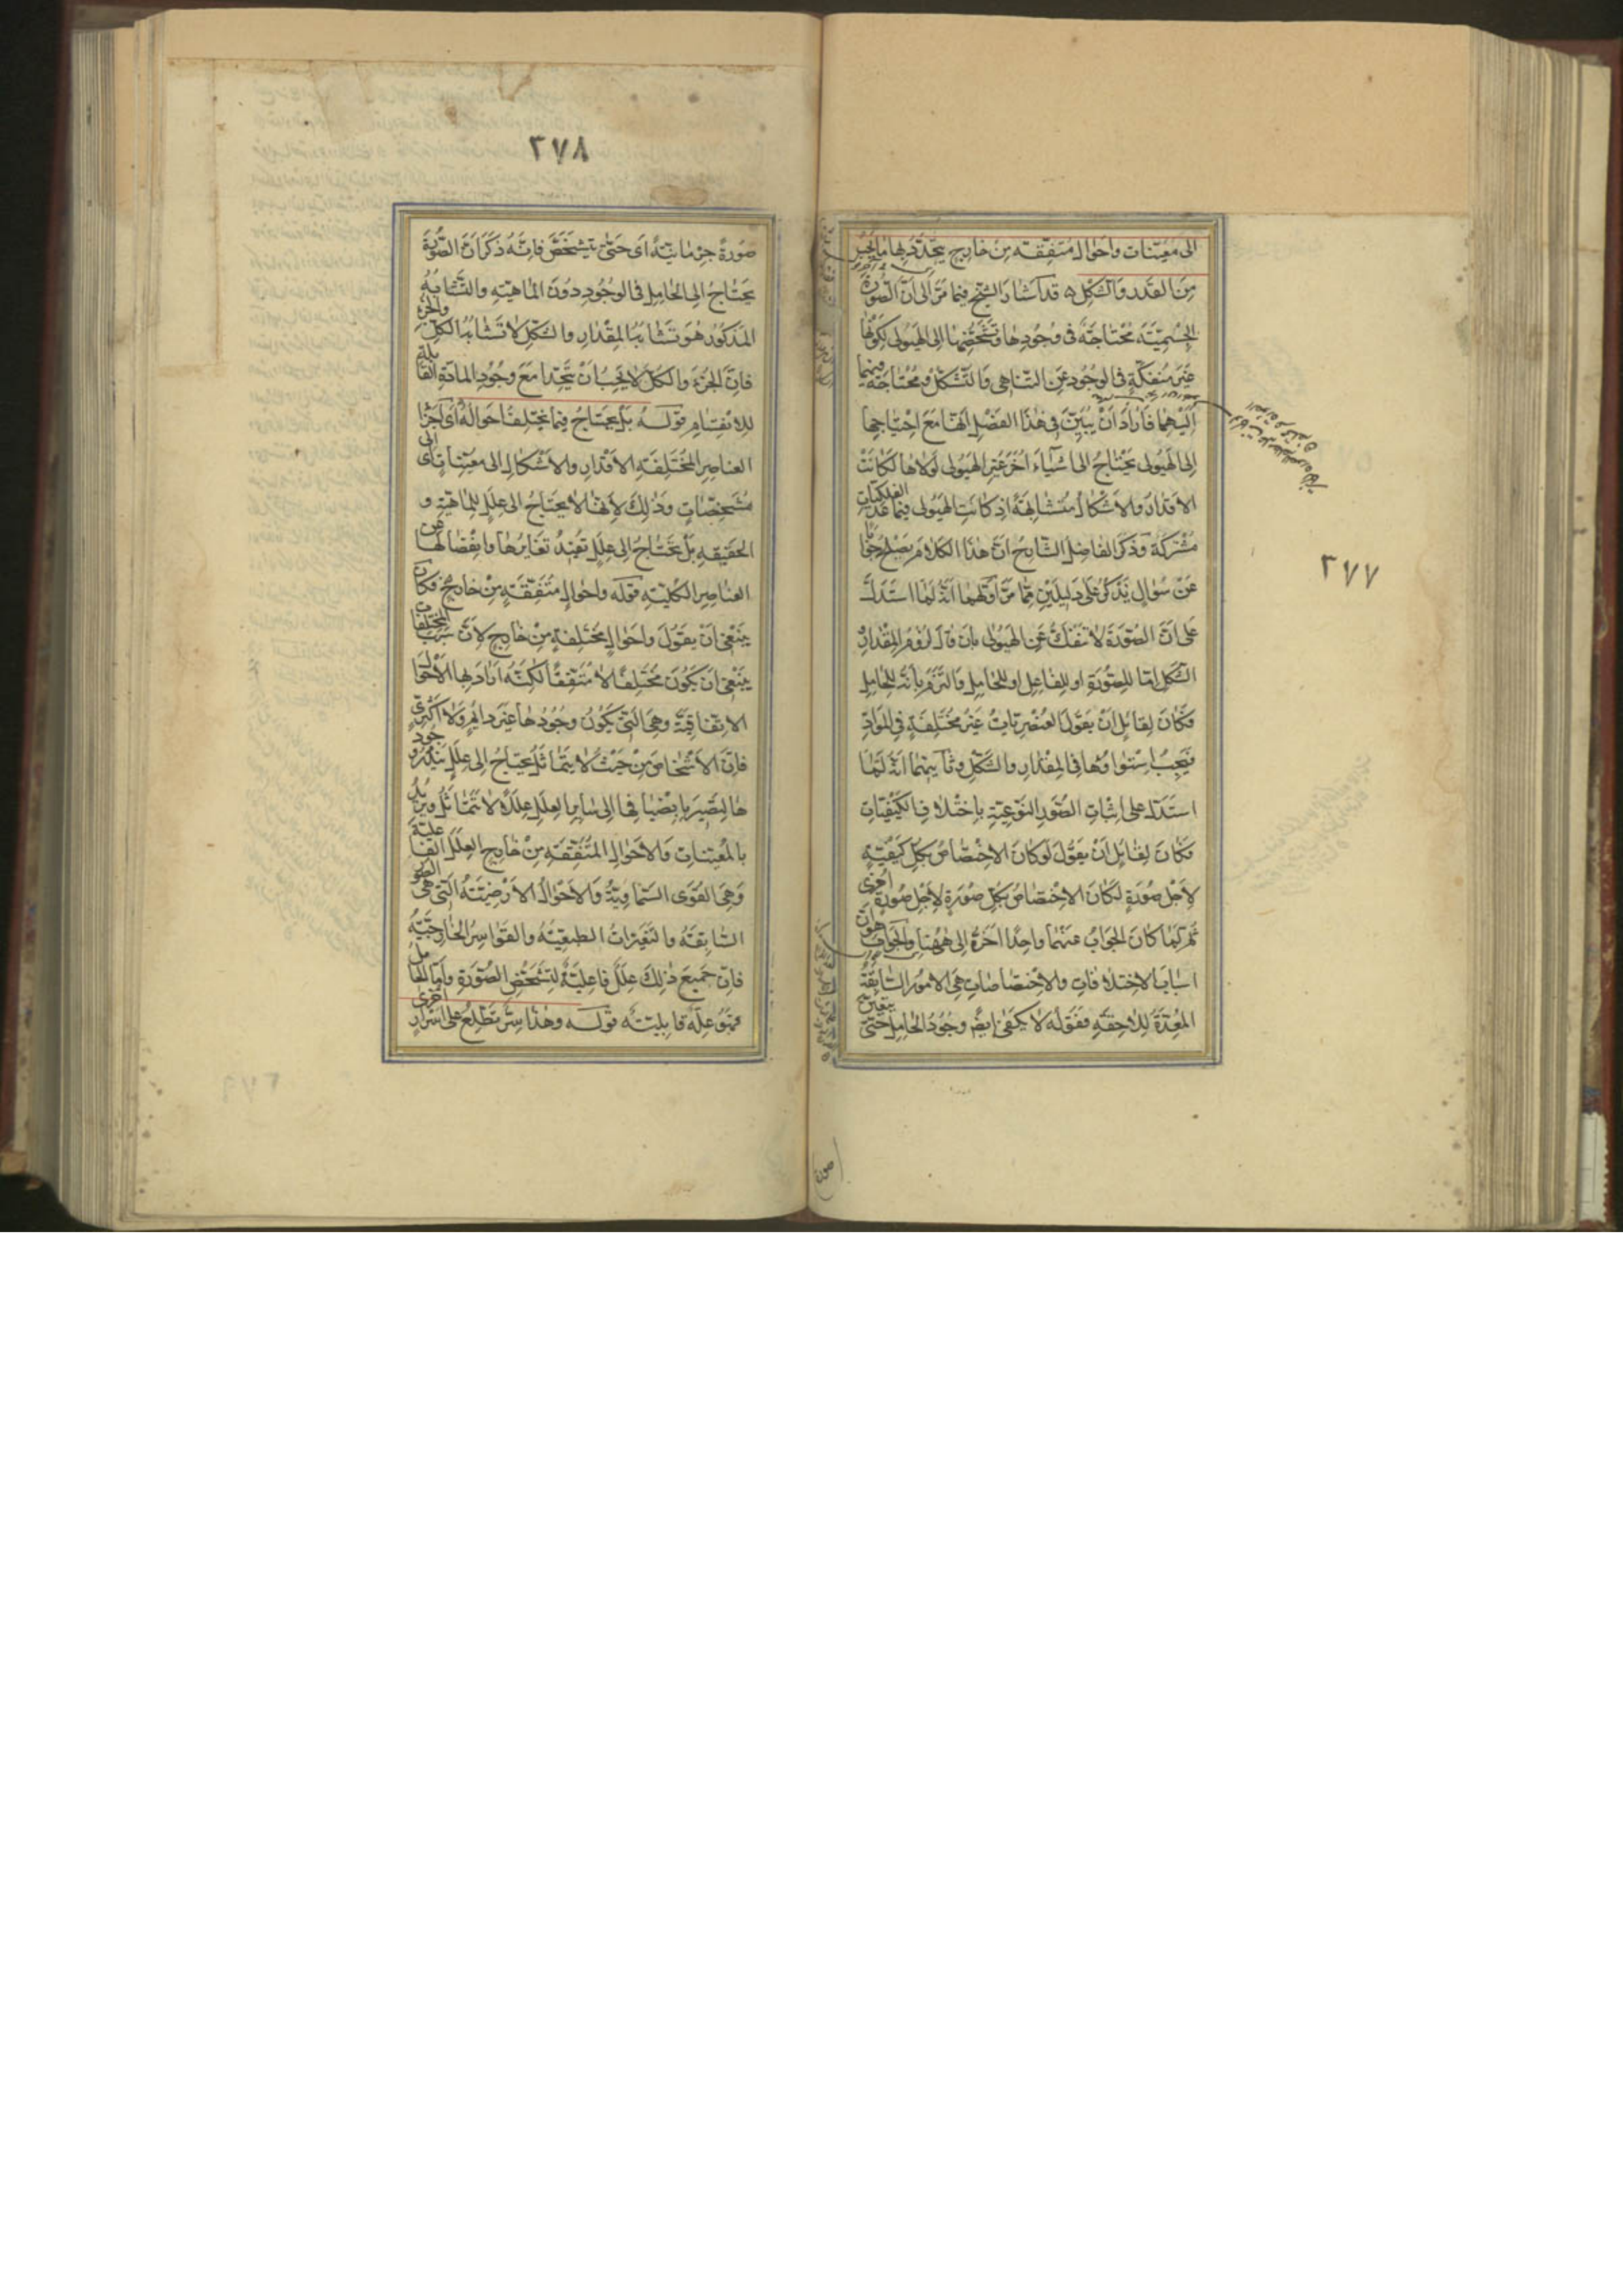 ٢٧٧
الى معينات واحوال متفقة من خارج يتحدد بها ما يجب
من القدر والشكل ه قد اشار الشيخ فيما مر الى ان الصورة
الجسمية محتاجة فى وجودها وتشخصها الى الهيولى لكونها
غير منفكة فى الوجود عن التناهى والتشكل ومحتاجة فيهما
اليهما فاراد ان يبين فى هذا الفصل انها مع احتياجها
الى الهيولى يحتاج الى اشياء اخر غير الهيولى لولاها لكانت
الاقدار والاشكال متشابهة اذ كانت الهيولى فيما عدا الفلكيات
مشتركة وذكر الفاضل الشارح ان هذا الكلام يصلح جوابا
عن سؤال يذكر على دليلين مما مر اولهما انه لما استدل
على ان الصورة لا تنفك عن الهيولى بان قال لزوم المقدار
الشكل اما للصورة او للفاعل او للحامل والتزم بانه للحامل
فكان لقائل ان يقول العنصريات غير مختلفة فى المواد
فيجب استواؤها فى المقدار والشكل وثانيهما انه لما
استدل على اثبات الصور النوعية باختلاف الكيفيات
فكان لقائل ان يقول لو كان الاختصاص بكل كيفية
لاجل صورة لكان الاختصاص بكل صورة لاجل صورة اخرى
ثم لما كان الجواب عنهما واحدا اخره الى ههنا والجواب هو ان
اسباب الاختلافات والاختصاصات هى الامور السابقة
المعدة للاحقة فقوله لا يكفى ايضا وجود الحامل حتى يتعين
٢٧٨
صورة جرمانية اى حتى يتشخص فانه ذكر ان الصورة
يحتاج الى الحامل فى الوجود دون الماهية والتشابه
المذكور هو تشابه المقدار والشكل لا تشابه الكل والجزء
فان الجزء والكل لا يجب ان يتحدا مع وجود المادة القابلة
للانقسام قوله بل يحتاج فيما يختلف احواله اى اجزا
العناصر المختلفة الاقدار والاشكال الى معينات اى الى
مشخصات وذلك لانها لا يحتاج الى علل للماهية و
الحقيقة بل يحتاج الى علل تفيد تغايرها وانفصالها عن
العناصر الكلية قوله واحوال متفقة من خارج فكان
ينبغى ان يقول واحوال مختلفة من خارج لان سبب المختلفات
ينبغى ان يكون مختلفا لا متفقا لكنه اراد بها الاحوال
الاتفاقية وهى التى يكون وجودها غير دائم ولا اكثرى
فان الاشخاص من حيث لا يتماثل يحتاج الى علل يندر وجود
ها لتصير بانضيافها الى ساير العلل عللا لا تتماثل ويريد
بالمعينات والاحوال المتفقة من خارج العلل الفاعلية
وهى القوى السماوية والاحوال الارضية التى هى الصور
السابقة والتغيرات الطبيعية والقواسر الخارجية
فان جميع ذلك علل فاعلية لتشخص الصورة واما الحامل
فهو علة قابلية قوله وهذا سر تطلع على اسرار اخرى